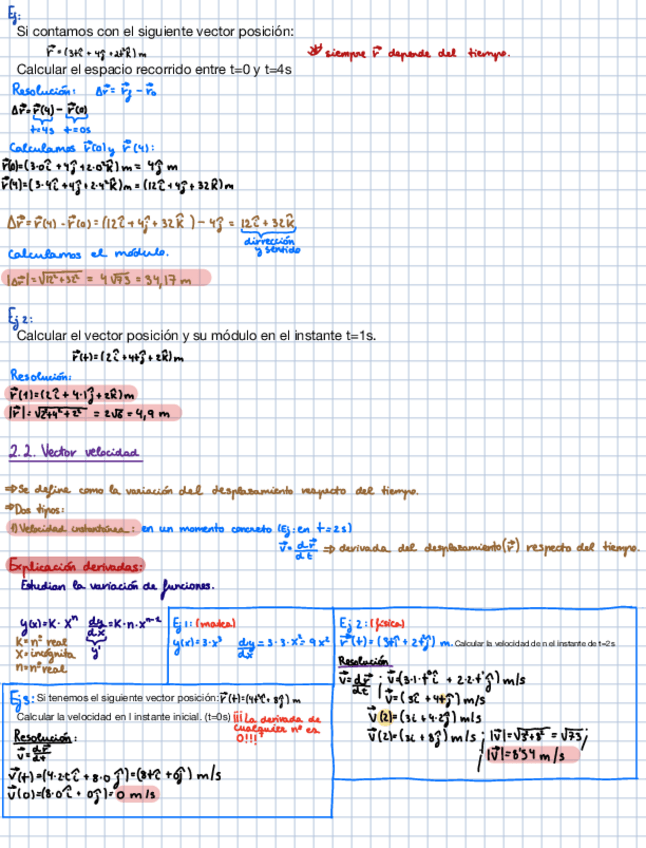 Ej:
Si contamos con el siguiente vector posición:
r⃗ = (3tî + 4ĵ + 2t²k̂) m
* siempre r⃗ depende del tiempo.
Calcular el espacio recorrido entre t=0 y t=4s
Resolución: Δr⃗ = r⃗f - r⃗0
Δr⃗ = r⃗(4) - r⃗(0)
t=4s t=0s
Calculamos r⃗(0) y r⃗(4):
r⃗(0)=(3·0î + 4ĵ + 2·0²k̂) m = 4ĵ m
r⃗(4)=(3·4î + 4ĵ + 2·4²k̂) m = (12î + 4ĵ + 32k̂) m
Δr⃗ = r⃗(4) - r⃗(0) = (12î + 4ĵ + 32k̂) - 4ĵ = 12î + 32k̂
dirección y sentido
Calculamos el módulo.
|Δr⃗| = √12²+32² = 4√73 = 34,17 m
Ej 2:
Calcular el vector posición y su módulo en el instante t=1s.
r⃗(t)=(2î + 4tĵ + 2k̂) m
Resolución:
r⃗(1)=(2î + 4·1ĵ + 2k̂) m
|r⃗| = √2²+4²+2² = 2√6 = 4,9 m
2.2. Vector velocidad
⇒ Se define como la variación del desplazamiento respecto del tiempo.
⇒ Dos tipos:
1) Velocidad instantánea: en un momento concreto (Ej: en t=2s)
v⃗ = dr⃗/dt ⇒ derivada del desplazamiento (r⃗) respecto del tiempo.
Explicación derivadas:
Estudian la variación de funciones.
y(x)=K·xⁿ dy/dx = K·n·xⁿ⁻¹
y'
K = nº real
X = incógnita
n = nº real
Ej 1: (mates)
y(x)=3·x³ dy/dx = 3·3·x² = 9x²
Ej 2: (física)
r⃗(t) = (3tî + 2t²ĵ) m. Calcular la velocidad de n el instante de t=2s
Resolución
v⃗ = dr⃗/dt ; v⃗=(3·1·t⁰î + 2·2·t¹ĵ) m/s
v⃗=(3î + 4tĵ) m/s
v⃗(2)=(3î + 4·2ĵ) m/s
v⃗(2)=(3î + 8ĵ) m/s ; |v⃗| = √3²+8² = √73;
|v⃗|=8'54 m/s
Ej 3: Si tenemos el siguiente vector posición: r⃗(t)=(4t²î + 8ĵ) m
Calcular la velocidad en l instante inicial. (t=0s)
¡¡¡La derivada de cualquier nº es 0!!!
Resolución:
v⃗ = dr⃗/dt
v⃗(t)=(4·2tî + 8·0ĵ)=(8tî + 0ĵ) m/s
v⃗(0)=(8·0î + 0ĵ)= 0 m/s